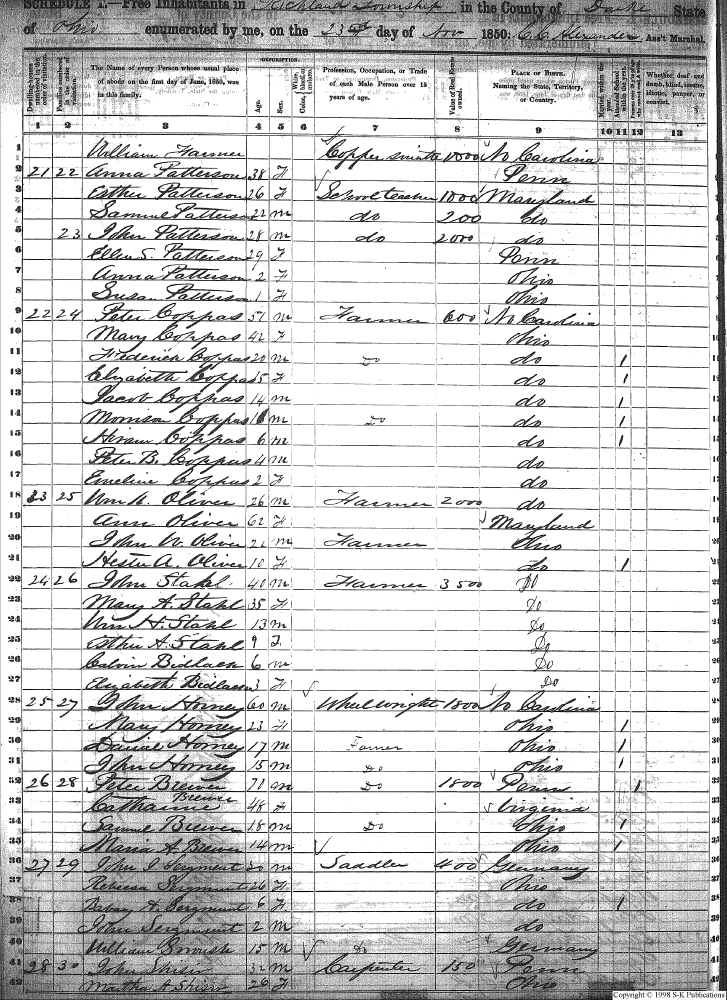 SCHEDULE I.—Free Inhabitants in Richland Township in the County of Darke State
of Ohio enumerated by me, on the 23rd day of Nov 1850. C. C. Alexander Ass't Marshal.
DESCRIPTION.
The Name of every Person whose usual place of abode on the first day of June, 1850, was in this family.
Age.
Sex.
Profession, Occupation, or Trade of each Male Person over 15 years of age.
Value of Real Estate owned.
PLACE OF BIRTH. Naming the State, Territory, or Country.
Whether deaf and dumb, blind, insane, idiotic, pauper, or convict.
1 2 3 4 5 6 7 8 9 10 11 12 13
1 William Farmer Copper smith 1000 No Carolina
2 21 22 Anna Patterson 38 F Penn
3 Esther Patterson 26 F School teacher 1000 Maryland
4 Samuel Patterson 22 m do 200 do
5 23 John Patterson 28 m do 2000 do
6 Ellen S. Patterson 29 F Penn
7 Anna Patterson 2 F Ohio
8 Susan Patterson 1 F Ohio
9 22 24 Peter Coppas 57 m Farmer 600 No Carolina
10 Mary Coppas 42 F Ohio
11 Frederick Coppas 20 m Do do 1
12 Elizabeth Coppas 15 F do 1
13 Jacob Coppas 14 m do 1
14 Morrison Coppas m Do do 1
15 Hiram Coppas 6 m do 1
16 Peter B. Coppas 4 m do
17 Emeline Coppas 2 F do
18 23 25 Wm K. Oliver 26 m Farmer 2000 do
19 Ann Oliver 62 F Maryland
20 John W. Oliver m Farmer Ohio
21 Hester A. Oliver 10 F do 1
22 24 26 John Stahl 40 m Farmer 3500 Do
23 Mary A. Stahl 35 F Do
24 Wm H. Stahl 13 m Do
25 Esther A. Stahl 9 F Do
26 Calvin Bidlack 6 m Do
27 Elizabeth Bidlack 3 F Do
28 25 27 John Horney 60 m Wheelwright 1800 No Carolina
29 Mary Horney 23 F Ohio 1
30 Daniel Horney 17 m Farmer Ohio 1
31 John Horney 15 m Do Ohio 1
32 26 28 Peter Brewer 70 m Do 1800 Penn 1
33 Catharine Brewer 48 F Virginia
34 Samuel Brewer 18 m Do Ohio 1
35 Maria A. Brewer 14 m Ohio 1
36 27 29 John Sergment 30 m Saddler 400 Germany
37 Rebecca Sergment 26 F Ohio
38 A. Sergment 6 F do 1
39 John Sergment 2 m do
40 William 15 m do Germany
41 28 30 John Shiew 32 m Carpenter 150 Penn
42 Martha A. Shiew 26 F Ohio
Copyright © 1998 S-K Publications